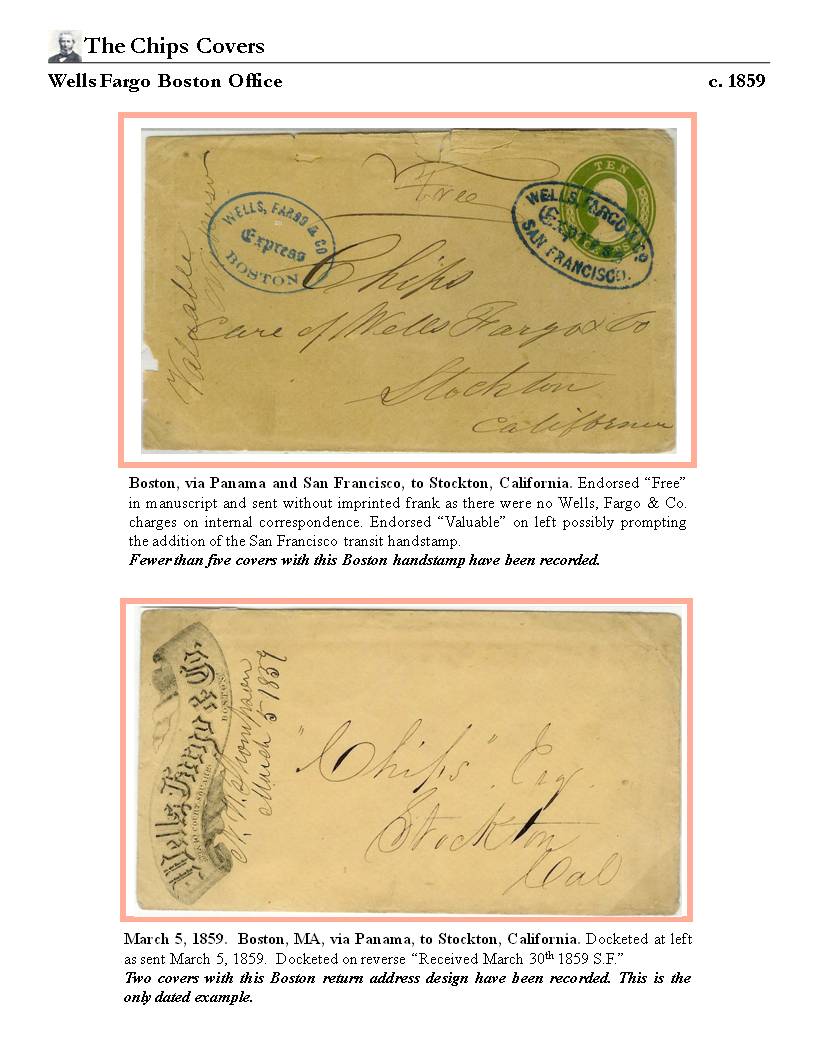 The Chips Covers
Wells Fargo Boston Office c. 1859
Free
TEN
WELLS, FARGO & CO
Express
BOSTON
WELLS, FARGO & Co
Express
SAN FRANCISCO.
Valuable
Chips
Care of Wells Fargo & Co
Stockton
California
Boston, via Panama and San Francisco, to Stockton, California. Endorsed “Free”
in manuscript and sent without imprinted frank as there were no Wells, Fargo & Co.
charges on internal correspondence. Endorsed “Valuable” on left possibly prompting
the addition of the San Francisco transit handstamp.
Fewer than five covers with this Boston handstamp have been recorded.
Wells Fargo & Co.
BOSTON
Thompson
March 5 1859
"Chips" Esq.
Stockton
Cal
March 5, 1859. Boston, MA, via Panama, to Stockton, California. Docketed at left
as sent March 5, 1859. Docketed on reverse “Received March 30th 1859 S.F.”
Two covers with this Boston return address design have been recorded. This is the
only dated example.